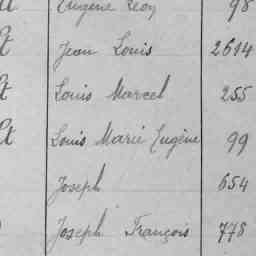 Eugène Léon 98
Jean Louis 2614
Louis Marcel 255
Louis Marie Eugène 99
Joseph 654
Joseph François 778